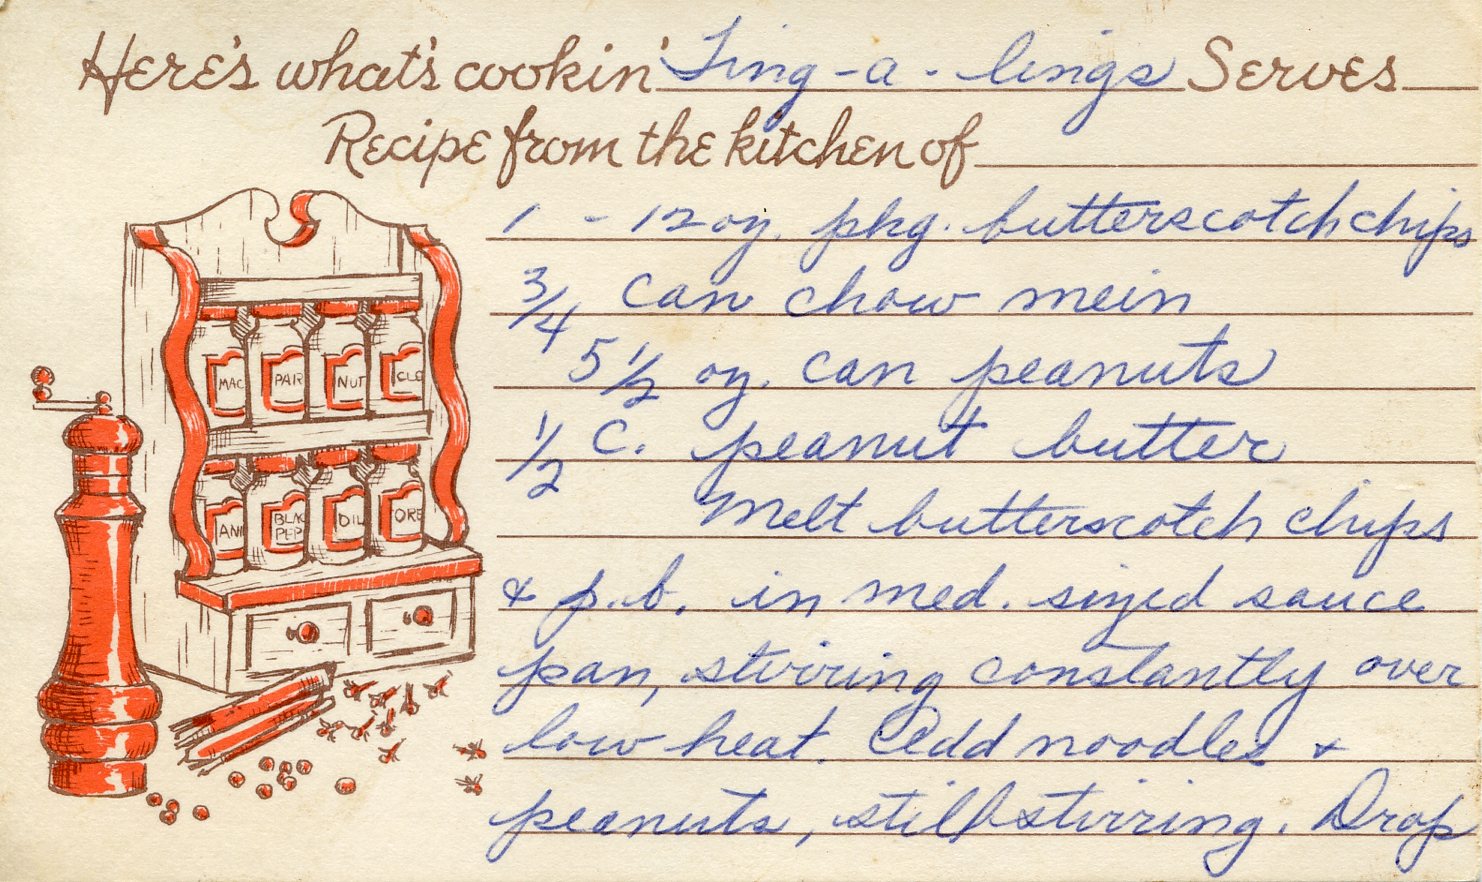 Here's what's cookin' Ting-a-lings Serves
Recipe from the kitchen of
1 - 12 oz. pkg. butterscotch chips
3/4 can chow mein
5 1/2 oz. can peanuts
1/2 c. peanut butter
Melt butterscotch chips
& p.b. in med. sized sauce
pan, stirring constantly over
low heat. Add noodles &
peanuts, still stirring. Drop
MAC PAR NUT CLO
ANI BLAC PEP DIL ORE